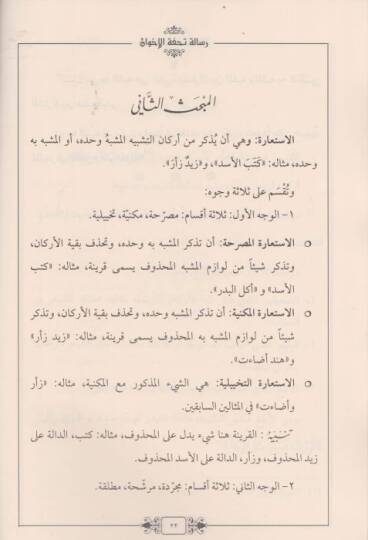 رسالة تحفة الإخوان
المبحث الثاني
الاستعارة: وهي أن يُذكر من أركان التشبيه المشبهُ وحده، أو المشبه به
وحده، مثاله: «كَتَبَ الأسد»، و«زيدٌ زأرَ».
وتُقْسَم على ثلاثة وجوه:
١- الوجه الأول: ثلاثة أقسام: مصرّحة، مكنيّة، تخييلية.
o الاستعارة المصرحة: أن تذكر المشبه به وحده، وتحذف بقية الأركان،
وتذكر شيئاً من لوازم المشبه المحذوف يسمى قرينة، مثاله: «كتب
الأسد» و«أكل البدر».
o الاستعارة المكنية: أن تذكر المشبه وحده، وتحذف بقية الأركان، وتذكر
شيئاً من لوازم المشبه به المحذوف يسمى قرينة، مثاله: «زيد زأر»
و«هند أضاءت».
o الاستعارة التخييلية: هي الشيء المذكور مع المكنية، مثاله: «زأر
وأضاءت» في المثالين السابقين.
تنبيه: القرينة هنا شيء يدل على المحذوف، مثاله: كتب، الدالة على
زيد المحذوف، وزأر، الدالة على الأسد المحذوف.
٢- الوجه الثاني: ثلاثة أقسام: مجرّدة، مرشّحة، مطلقة.
٢٢